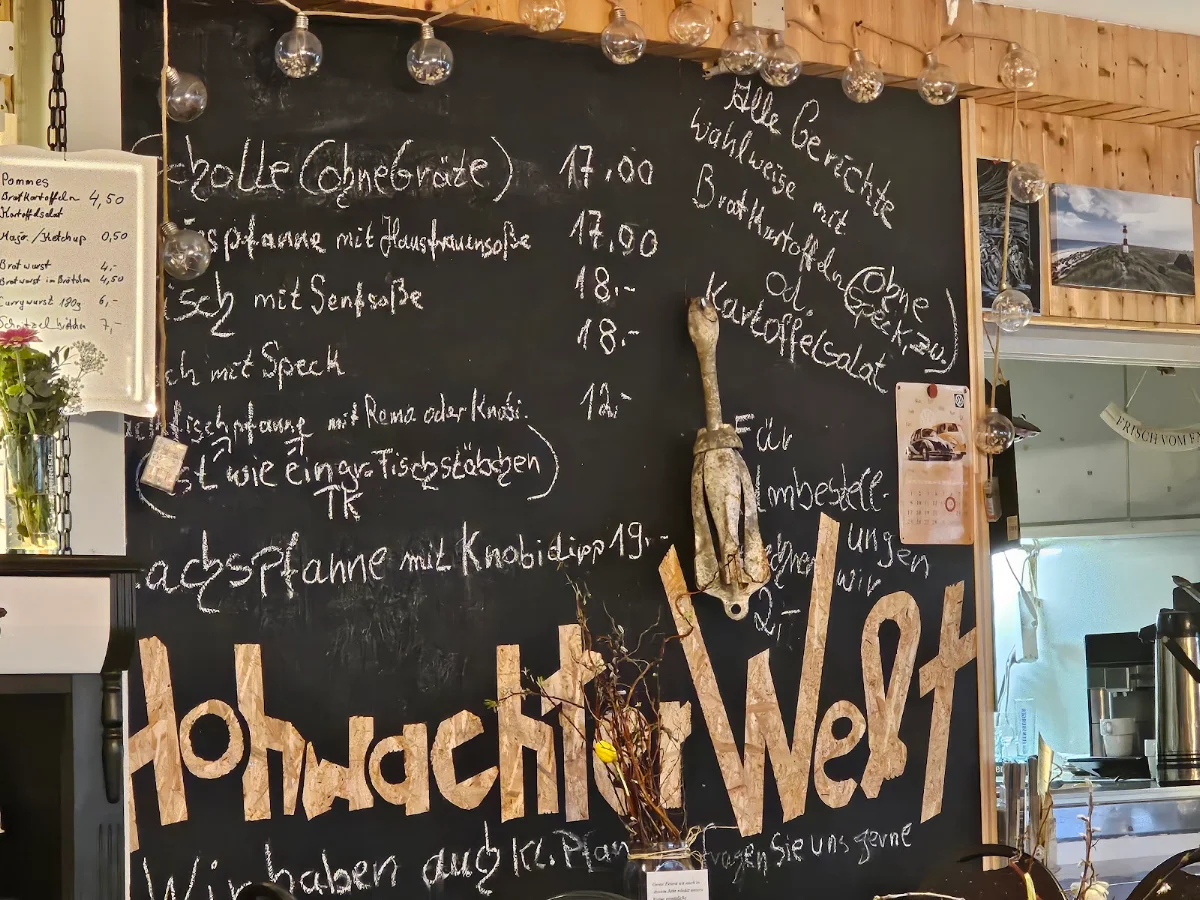 Pommes
Bratkartoffeln 4,50
Kartoffelsalat
Majo/Ketchup 0,50
Bratwurst 4,-
Bratwurst im Brötchen 4,50
Currywurst 180g 6,-
7,-
cholle (ohne Gräte) 17,00
spfanne mit Hausfrauensoße 17,00
isch mit Senfsoße 18,-
ch mit Speck 18,-
fischpfanne mit Remo oder Knobi. 12,-
st wie ein gr. Fischstäbchen)
TK
achspfanne mit Knobidipp 19,-
Alle Gerichte
wahlweise mit
Bratkartoffeln (ohne
Speck, zw.)
od.
Kartoffelsalat
Für
mbestell-
ungen
wir
2,-
FRISCH VOM
Hohwachter Welt
Wir haben auch kl. fragen Sie uns gerne